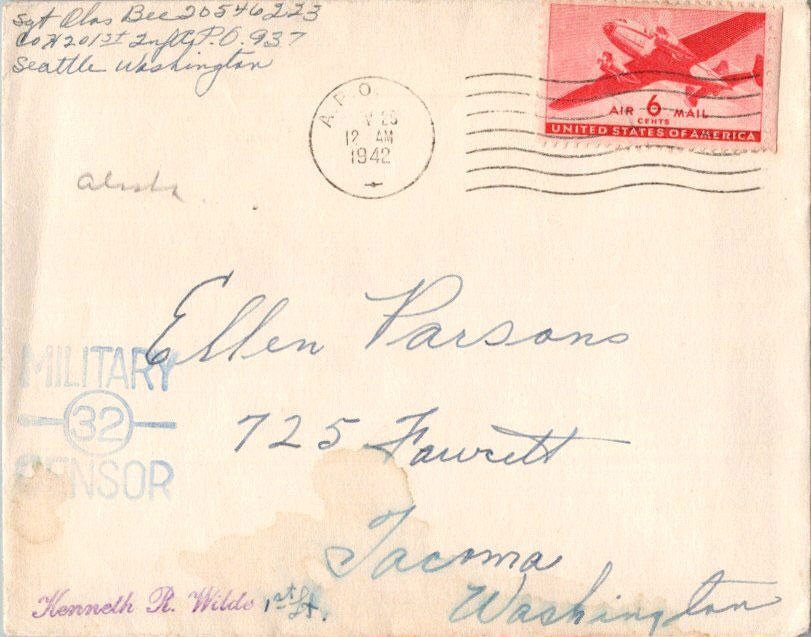 Sgt Olas Bee 20546223
Co H 201st Inf A.P.O. 937
Seattle Washington
A.P.O.
V 23
12 AM
1942
AIR 6 MAIL
CENTS
UNITED STATES OF AMERICA
Ellen Parsons
725 Fawcett
Tacoma
Washington
MILITARY
32
CENSOR
Kenneth R. Wilde 1st Lt.